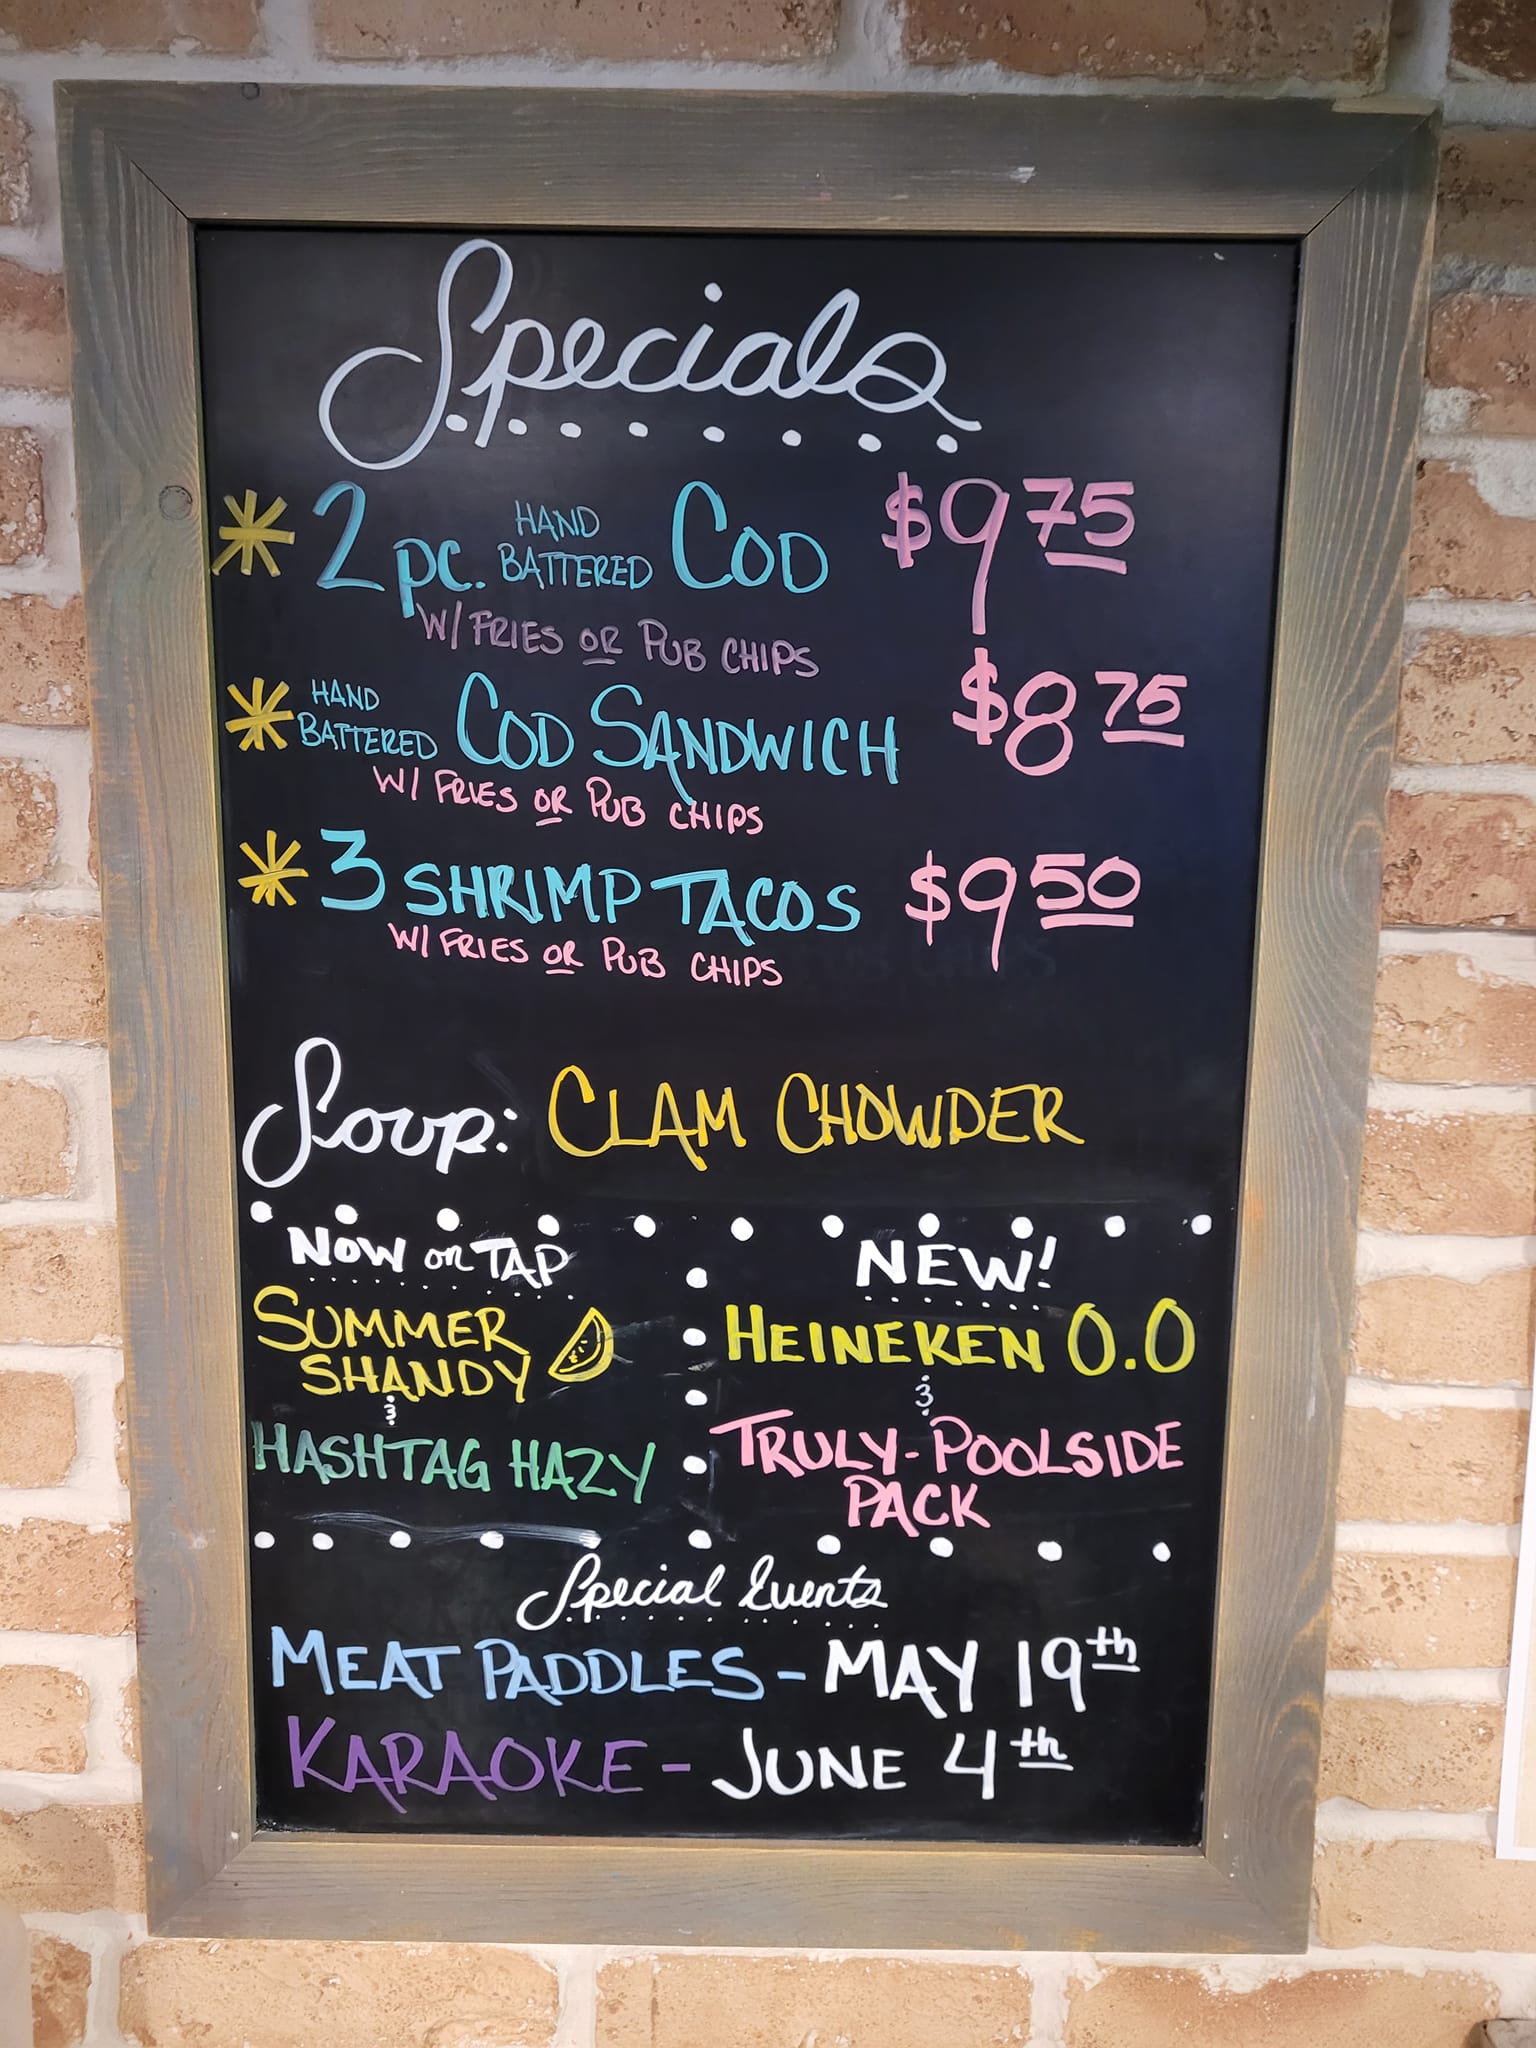 Specials
* 2 pc. HAND BATTERED COD $9 75
W/ FRIES OR PUB CHIPS
* HAND BATTERED COD SANDWICH $8 75
W/ FRIES OR PUB CHIPS
* 3 SHRIMP TACOS $9 50
W/ FRIES OR PUB CHIPS
Soup: CLAM CHOWDER
NOW on TAP
SUMMER
SHANDY
&
HASHTAG HAZY
NEW!
HEINEKEN 0.0
&
TRULY-POOLSIDE
PACK
Special Events
MEAT PADDLES - MAY 19th
KARAOKE - JUNE 4th